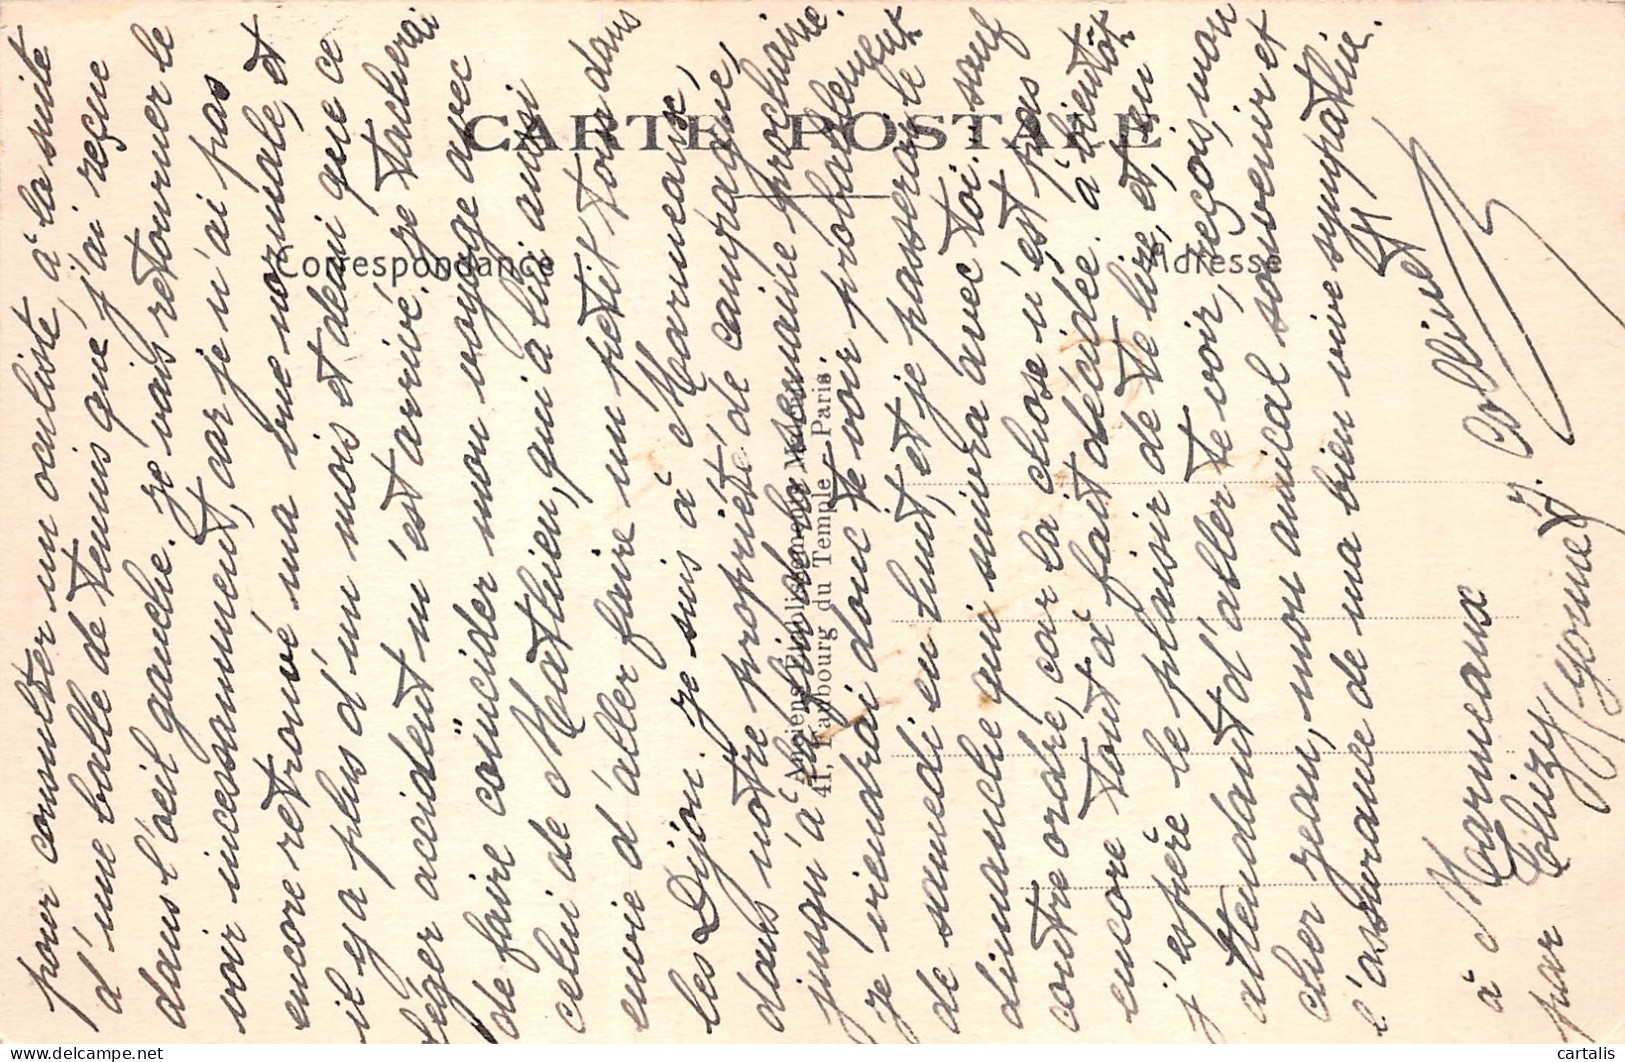 CARTE POSTALE
Correspondance
Adresse
Anciens Établissements
41, Faubourg du Temple, Paris
pour consulter un oculiste, à la suite
d'une balle de tennis que j'ai reçue
dans l'oeil gauche. Je vais retourner le
voir incessamment, car je n'ai pas
encore retrouvé ma vue normale, et
il y a plus d'un mois et demi que ce
léger accident m'est arrivé. Je tacherai
de faire coïncider mon voyage avec
celui de Mathieu, qui a lui aussi
envie d'aller faire un petit tour dans
les Dijon. Je suis à Marmeaux,
dans notre propriété de campagne,
jusqu'à la fin de la semaine prochaine.
Je viendrai donc te voir probablement
de samedi en huit, et je passerai le
dimanche qui suivra avec toi. sauf
contre ordre, car la chose n'est pas
encore tout à fait décidée. à bientôt
j'espère le plaisir de te lire, et, en
attendant d'aller te voir, reçois, mon
cher Jean, mon amical souvenir et
l'assurance de ma bien vive sympathie.
J. Collinet
à Marmeaux
par Guizy
(Yonne)
cartalis